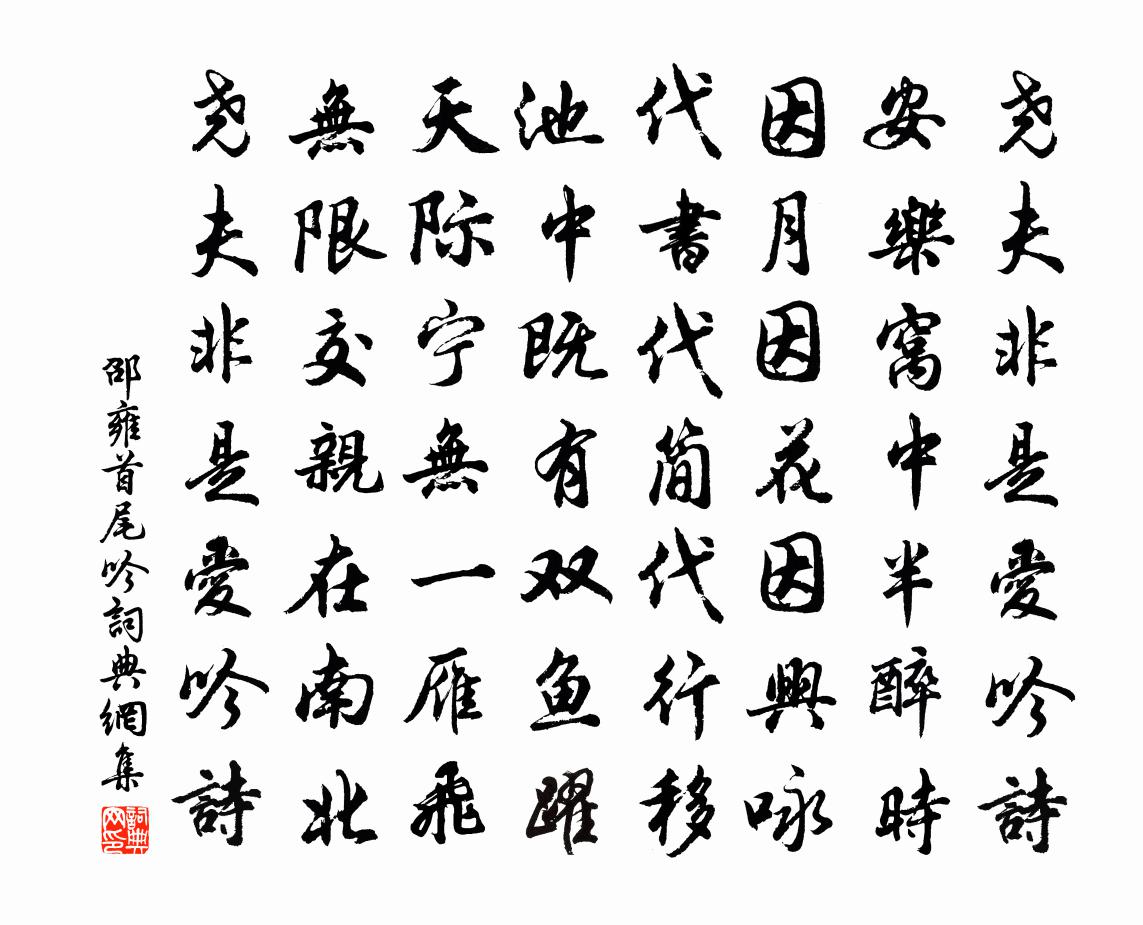 尧夫非是愛吟詩
安樂窩中半醉時
因月因花因興咏
代書代简代行移
池中既有双鱼躍
天际宁無一雁飛
無限交親在南北
尧夫非是愛吟詩
邵雍首尾吟詞典網集
詞典
网印